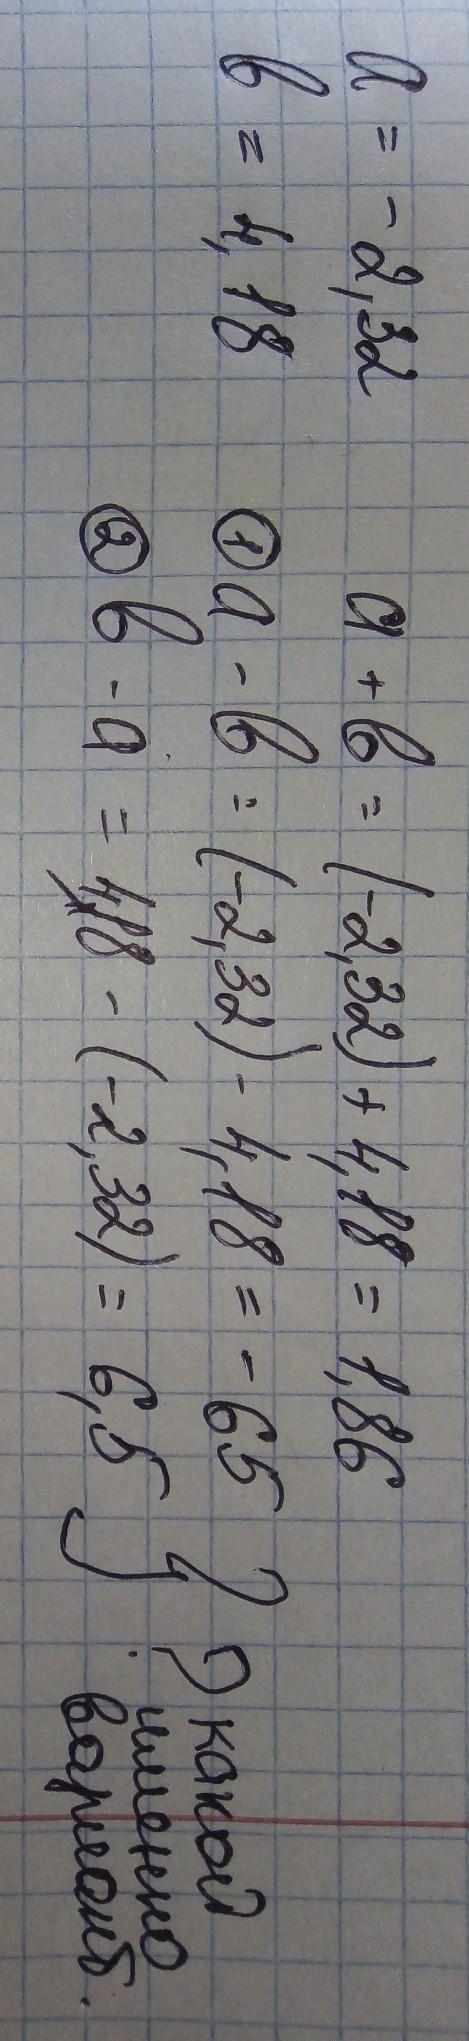 a = -2,32
b = 4,18
a + b = (-2,32) + 4,18 = 1,86
① a - b = (-2,32) - 4,18 = -65
② b - a = 4,18 - (-2,32) = 6,5
? какой
именно
вариант.